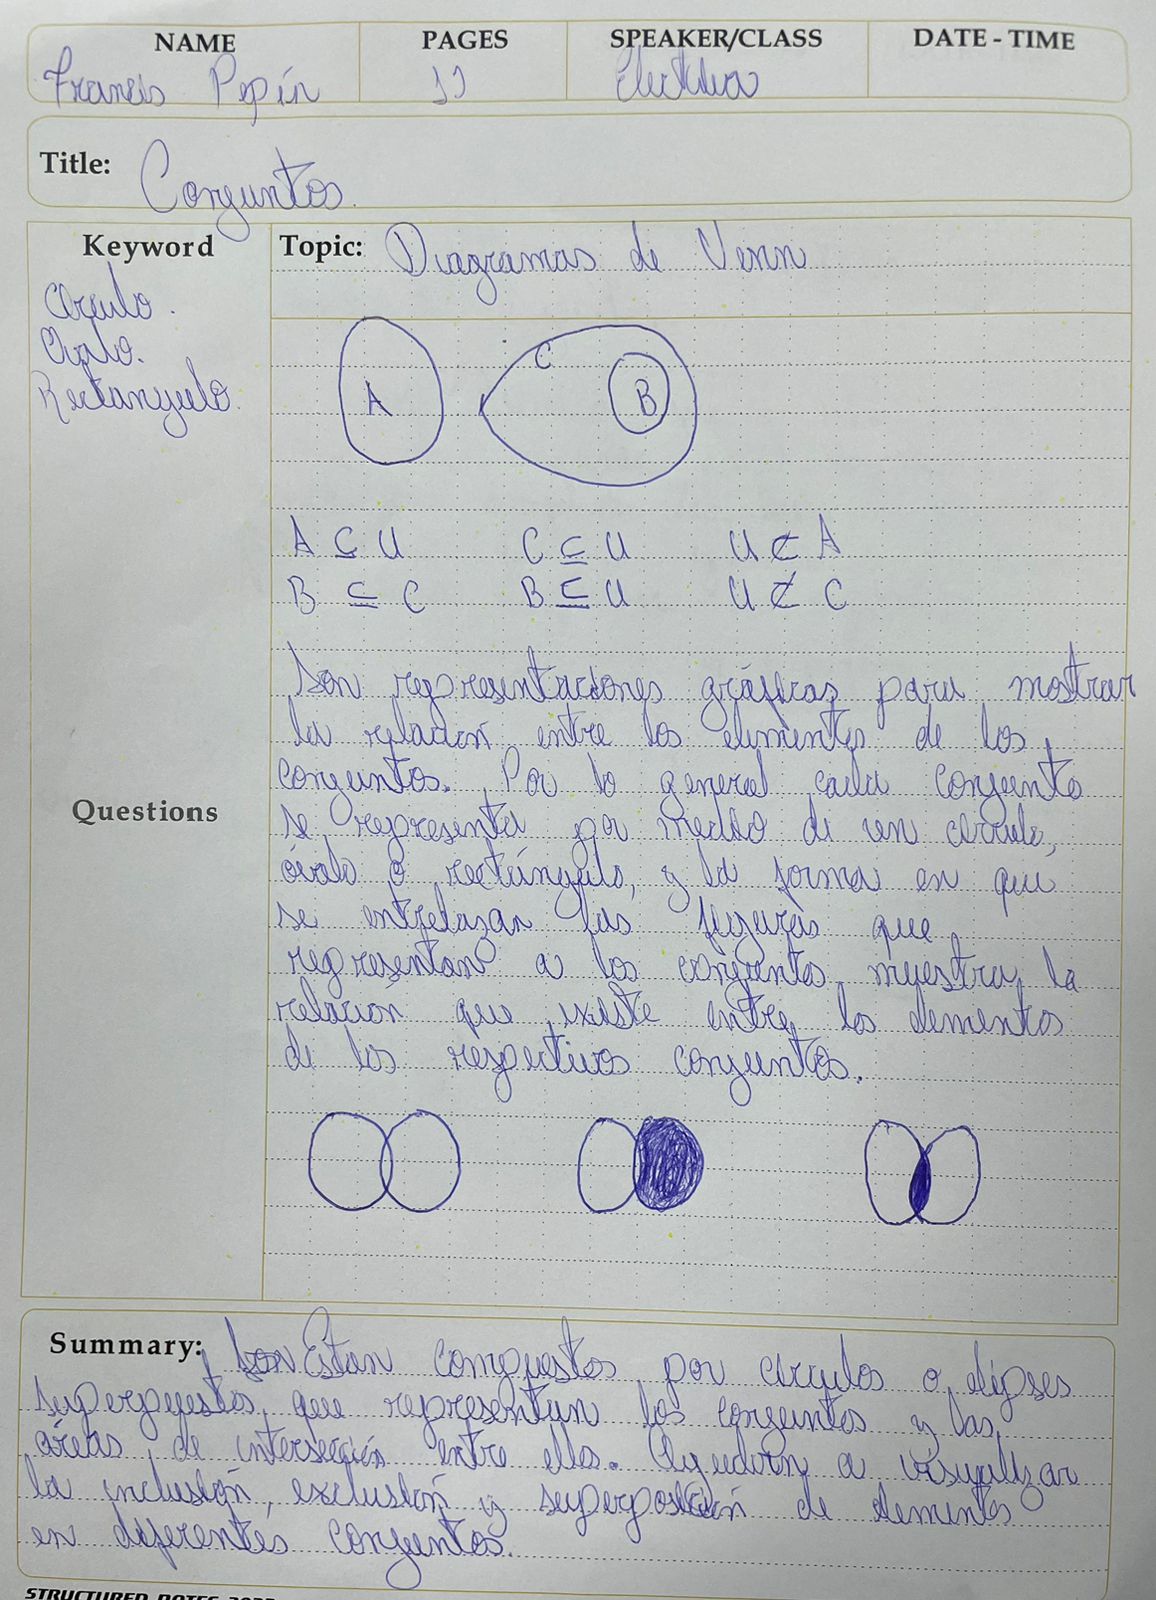 NAME PAGES SPEAKER/CLASS DATE - TIME
Francis Pepín 11 Electiva
Title: Conjuntos.
Keyword
Círculo.
Ovalo.
Rectangulo.
Topic: Diagramas de Venn
A C B
A ⊆ U C ⊆ U U ⊄ A
B ⊆ C B ⊆ U U ⊄ C
Son representaciones gráficas para mostrar
la relación entre los elementos de los
conjuntos. Por lo general cada conjunto
se representa por medio de un círculo,
óvalo o rectángulo, y la forma en que
se entrelazan las figuras que
representan a los conjuntos muestra la
relación que existe entre los elementos
de los respectivos conjuntos.
Questions
Summary: Son Estan compuestos por círculos o elipses
superpuestos, que representan los conjuntos y las
áreas de intersección entre ellos. Ayudan a visualizar
la inclusión, exclusión y superposición de elementos
en diferentes conjuntos.